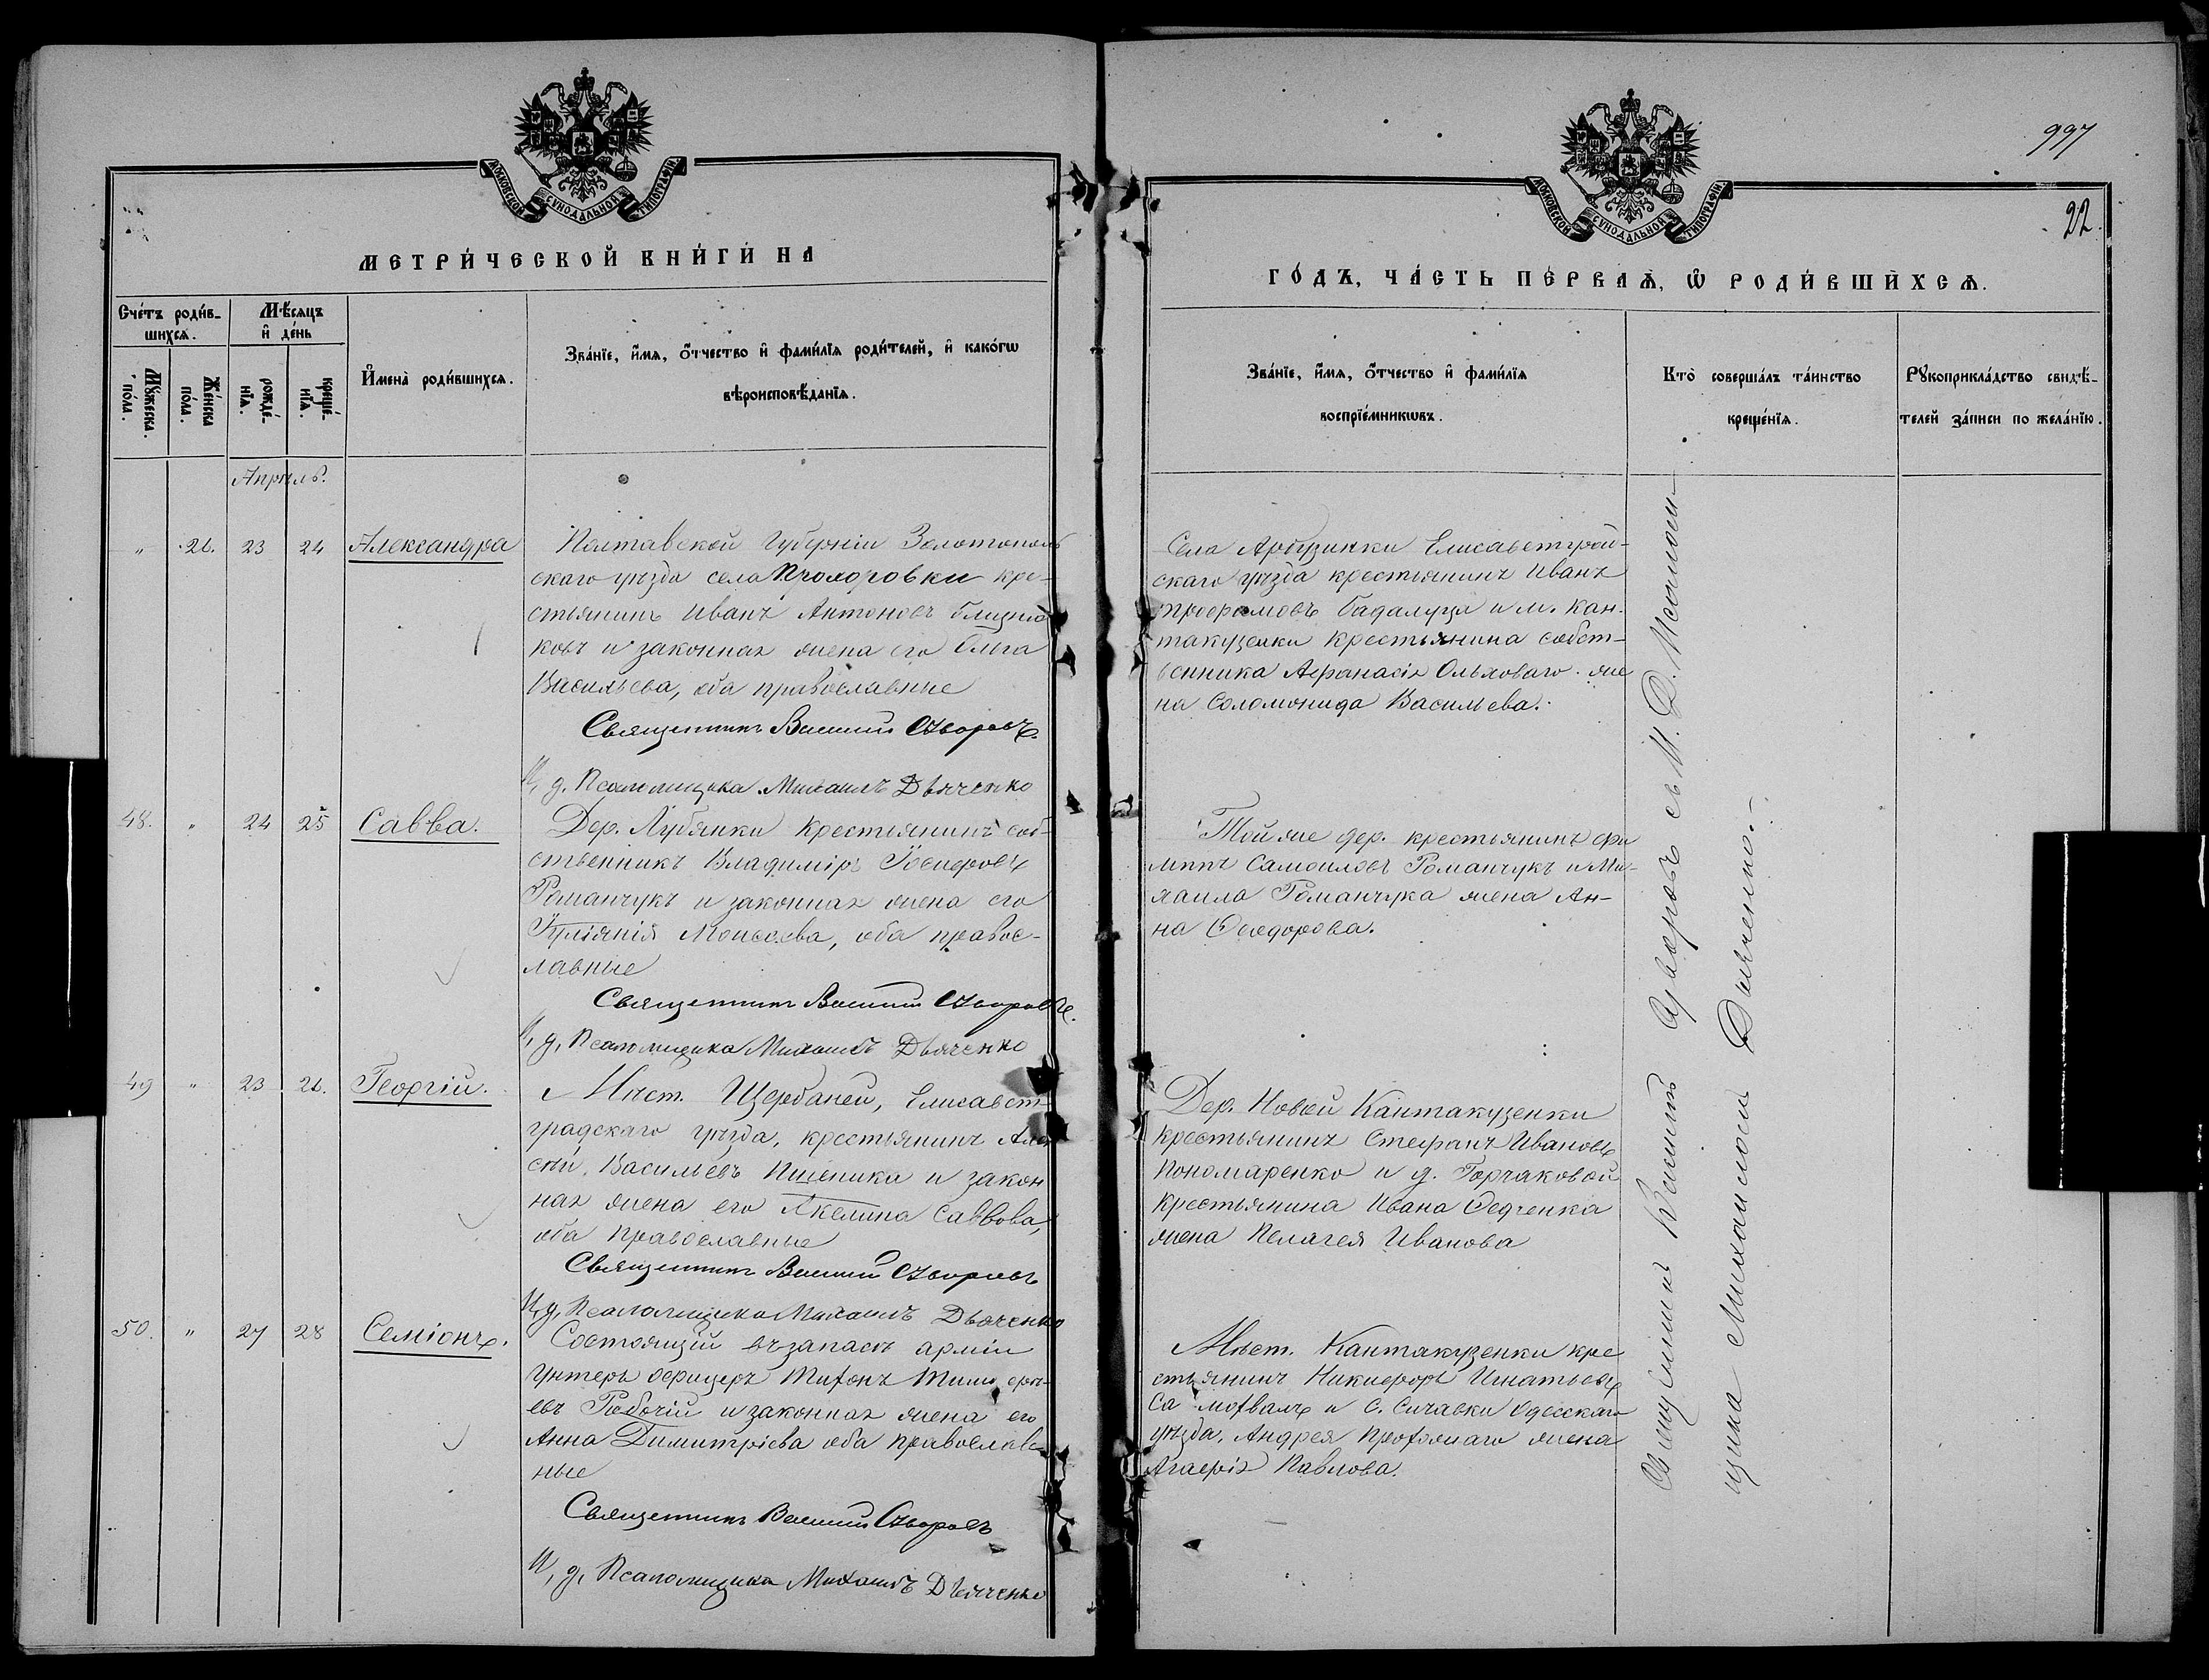 МОСКОВСКОЙ СУНОДАЛЬНОЙ ТИПОГРАФІИ
МЕТРИ́ЧЕСКОЙ КНИ́ГИ НА
Сче́тъ роди́в-
шихся.
Мѣ́сяцъ
и҆ де́нь
Мꙋ́жеска.
по́ла.
Же́нска
по́ла.
рожде́-
нїѧ.
креще́-
нїѧ.
И҆мена̀ роди́вшихся.
Зва́нїе, и҆́мя, ѻ҆́тчество и҆ фами́лїѧ роди́телей, и҆ како́гѡ
вѣроисповѣ́данїѧ.
Апрѣль.
„ 26. 23 24 Александра
Полтавской Губерніи Золотонош
скаго уѣзда села Прохоровки кре-
стьянинъ Иванъ Антоновъ Близню
ковъ и законная жена его Ольга
Васильева, оба православные
Священникъ Василій
И, д, Псаломщика Михаилъ Дьяченко
48. „ 24 25 Савва.
Дер. Лубянки крестьянинъ соб-
ственникъ Владиміръ Іосифовъ
Романчукъ и законная жена его
Іуліянія Моисеева, оба правос-
лавные
Священникъ Василій
И, д, Псаломщика Михаилъ Дьяченко
49 „ 23 26. Георгій.
Мѣст. Щербаней, Елисавет-
градскаго уѣзда, крестьянинъ Але
сѣй Васильевъ Пшеника и закон
ная жена его Акелина Саввова,
оба православные
Священникъ Василій
И, д, Псаломщика Михаилъ Дьяченко
50. „ 27 28 Семіонъ.
Состоящій въ запасѣ арміи
унтеръ офицеръ Тихонъ Тимофе-
евъ Рабочій и законная жена его
Анна Димитріева оба православ-
ные
Священникъ Василій
И, д, Псаломщика Михаилъ Дьяченко
997
22.
МОСКОВСКОЙ СУНОДАЛЬНОЙ ТИПОГРАФІИ
ГО́ДЪ, ЧА́СТЬ ПЕ́РВАѦ, Ѡ҆ РОДИ́ВШИХСѦ.
Зва́нїе, и҆́мя, ѻ҆́тчество и҆ фами́лїѧ
воспрїе́мникѡвъ.
Кто̀ соверша́лъ та́инство
креще́нїѧ.
Рꙋкоприкла́дство свидѣ́-
телей за́писи по жела́нїю.
Села Арбузинки Елисаветград-
скаго уѣзда крестьянинъ Иванъ
Трофимовъ Бадалуца и м. Кан-
такузенки крестьянина собст-
венника Афанасія Ольховаго же
на Соломонида Васильева.
Той же дер. крестьянинъ Фи
липпъ Самоиловъ Романчукъ и Ми-
хаила Романчука жена Ан-
на Ѳеодорова.
Дер. Новой Кантакузенки
крестьянинъ Стефанъ Ивановъ
Пономаренко и д. Горчаковой
крестьянина Ивана Федченка
жена Пелагея Иванова
Мѣст. Кантакузенки кре
стьянинъ Никифоръ Игнатьевъ
и с. Сичавки Одесскаго
уѣзда, Андрея жена
Агафія Павлова.
Священникъ Василій съ И. Д. Псалом-
щика Михаиломъ Дьяченко.